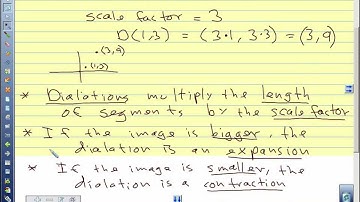 scale factor = 3
D(1,3) = (3·1, 3·3) = (3,9)
(3,9)
(1,3)
* Dialations multiply the length
of segments by the scale factor
* If the image is bigger, the
dialation is an expansion
* If the image is smaller, the
dialation is a contraction